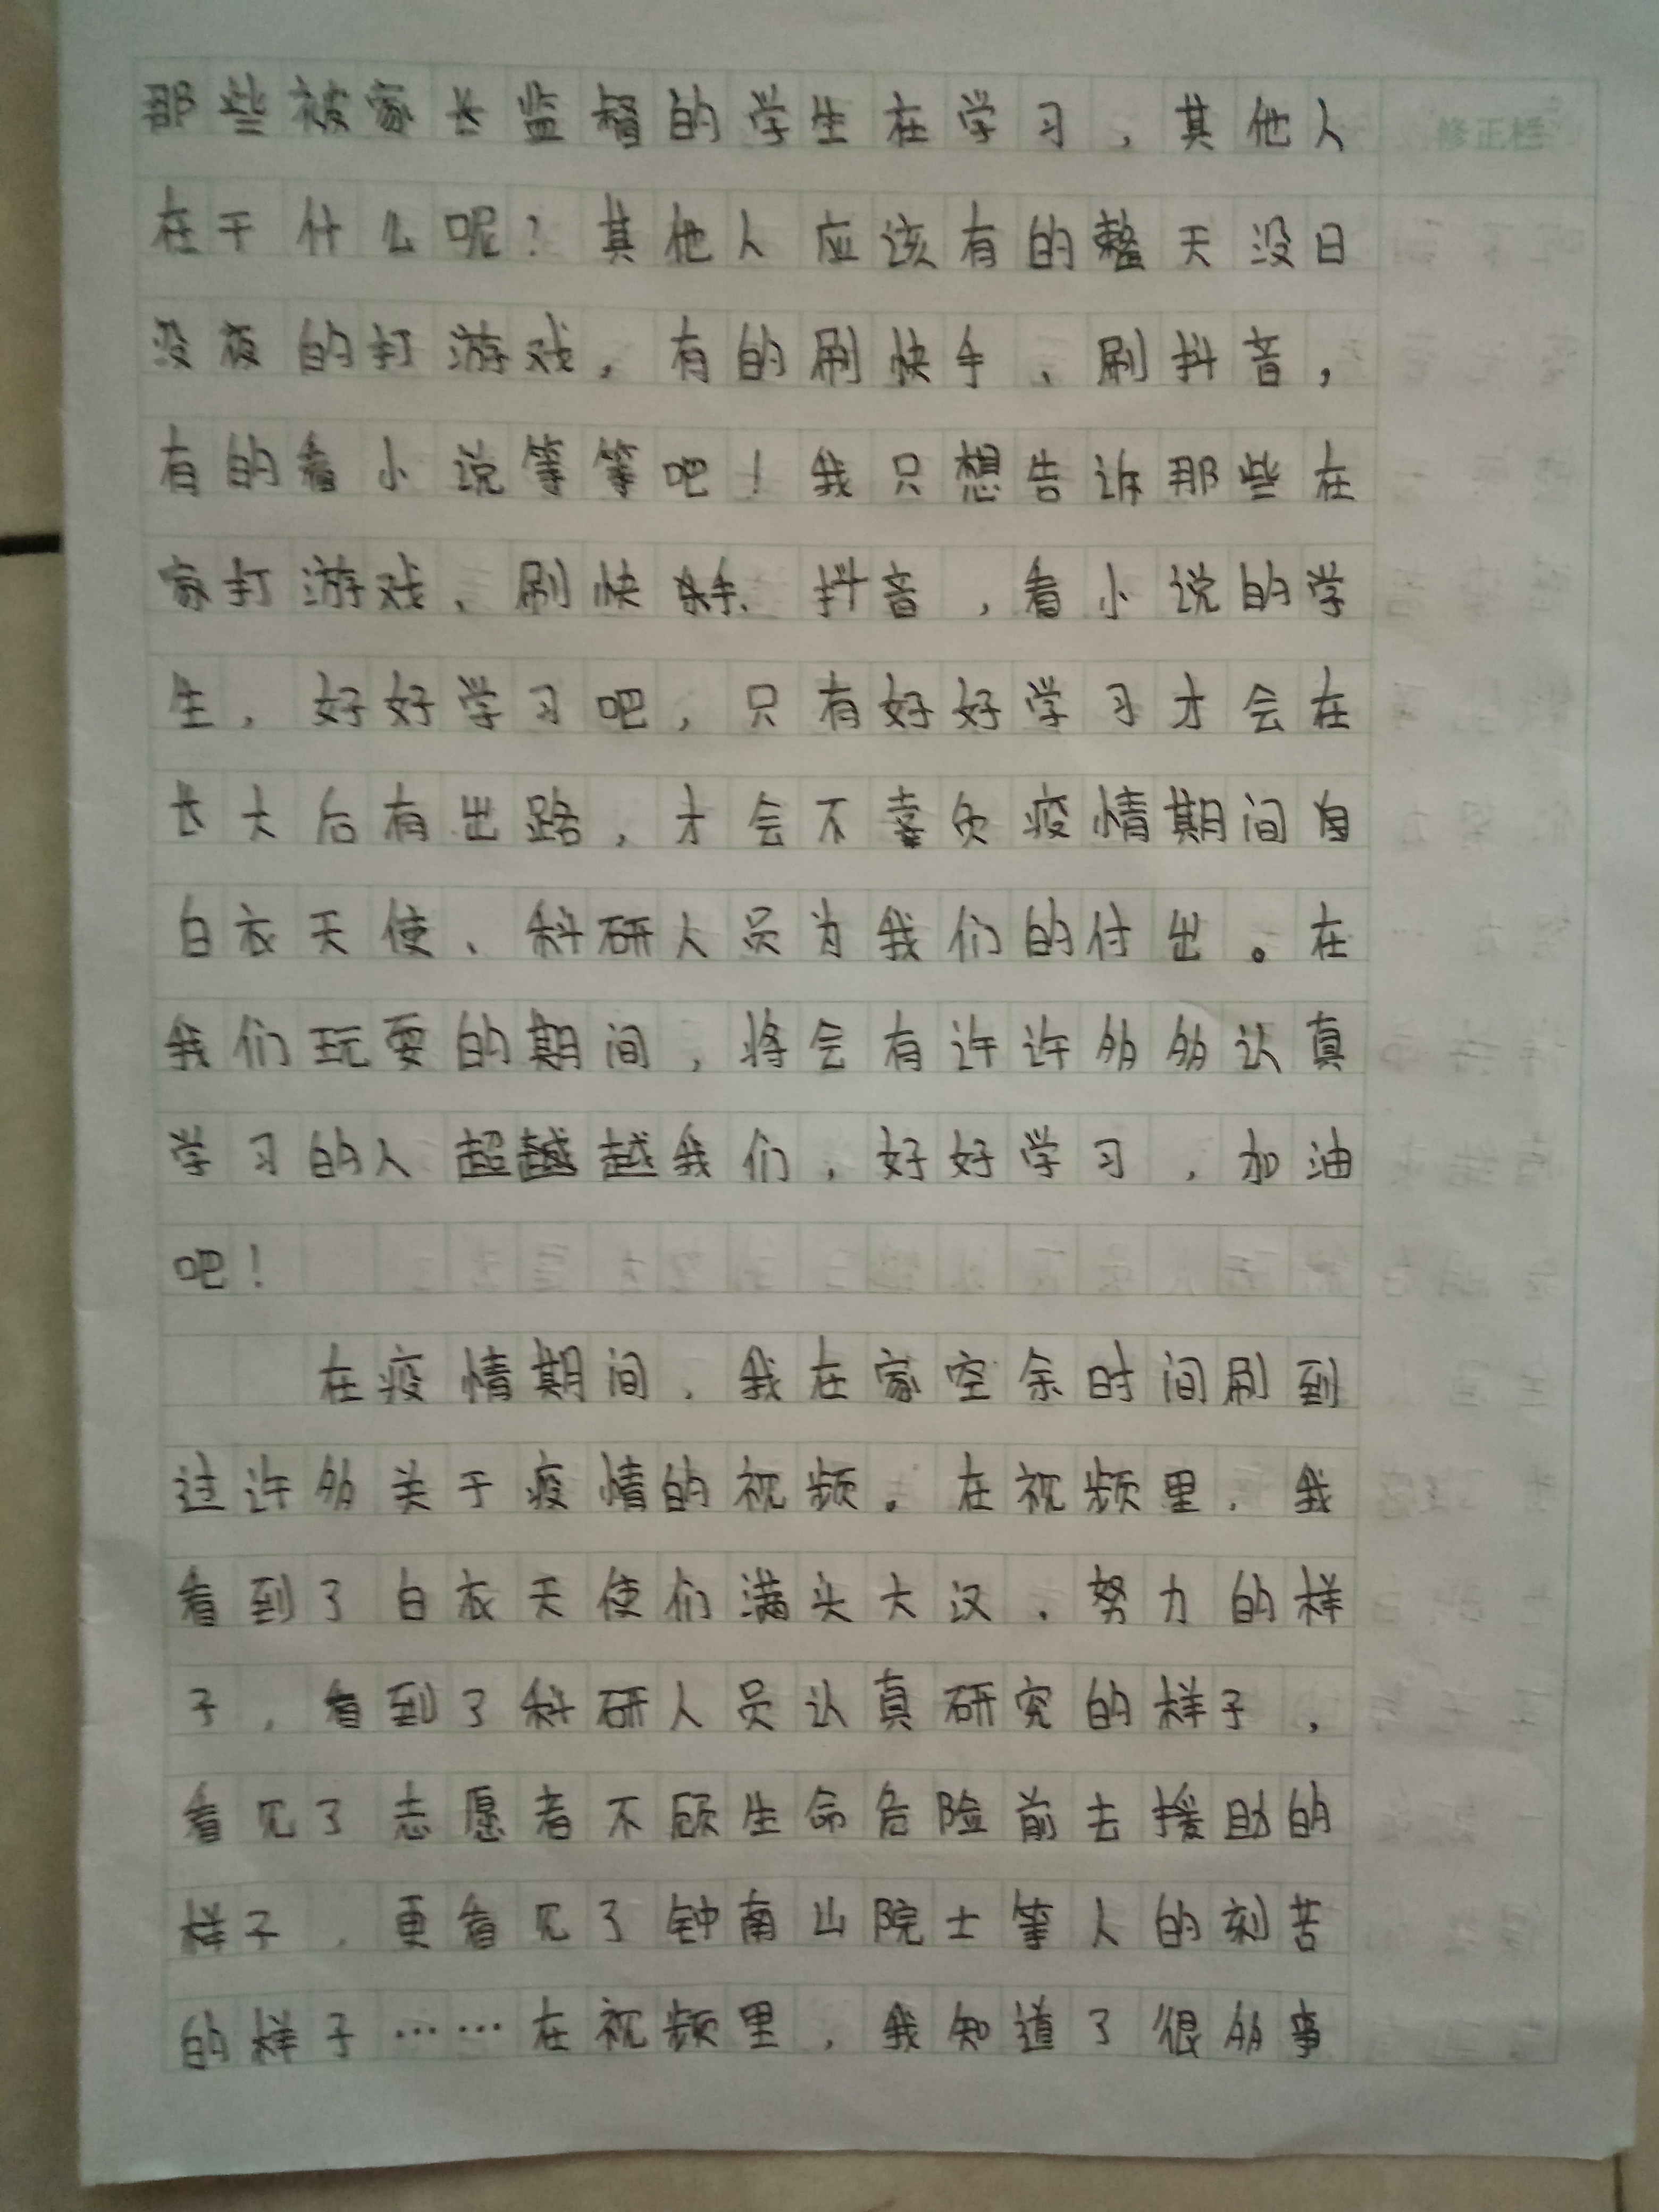 那些被家长监督的学生在学习，其他人
修正栏
在干什么呢？其他人应该有的整天没日
没夜的打游戏，有的刷快手、刷抖音，
有的看小说等等吧！我只想告诉那些在
家打游戏、刷快手、抖音，看小说的学
生，好好学习吧，只有好好学习才会在
长大后有出路，才会不辜负疫情期间
白衣天使、科研人员为我们的付出。在
我们玩耍的期间，将会有许许多多认真
学习的人超越我们，好好学习，加油
吧！
在疫情期间，我在家空余时间刷到
过许多关于疫情的视频。在视频里，我
看到了白衣天使们满头大汉，努力的样
子，看到了科研人员认真研究的样子，
看见了志愿者不顾生命危险前去援助的
样子，更看见了钟南山院士等人的刻苦
的样子……在视频里，我知道了很多事